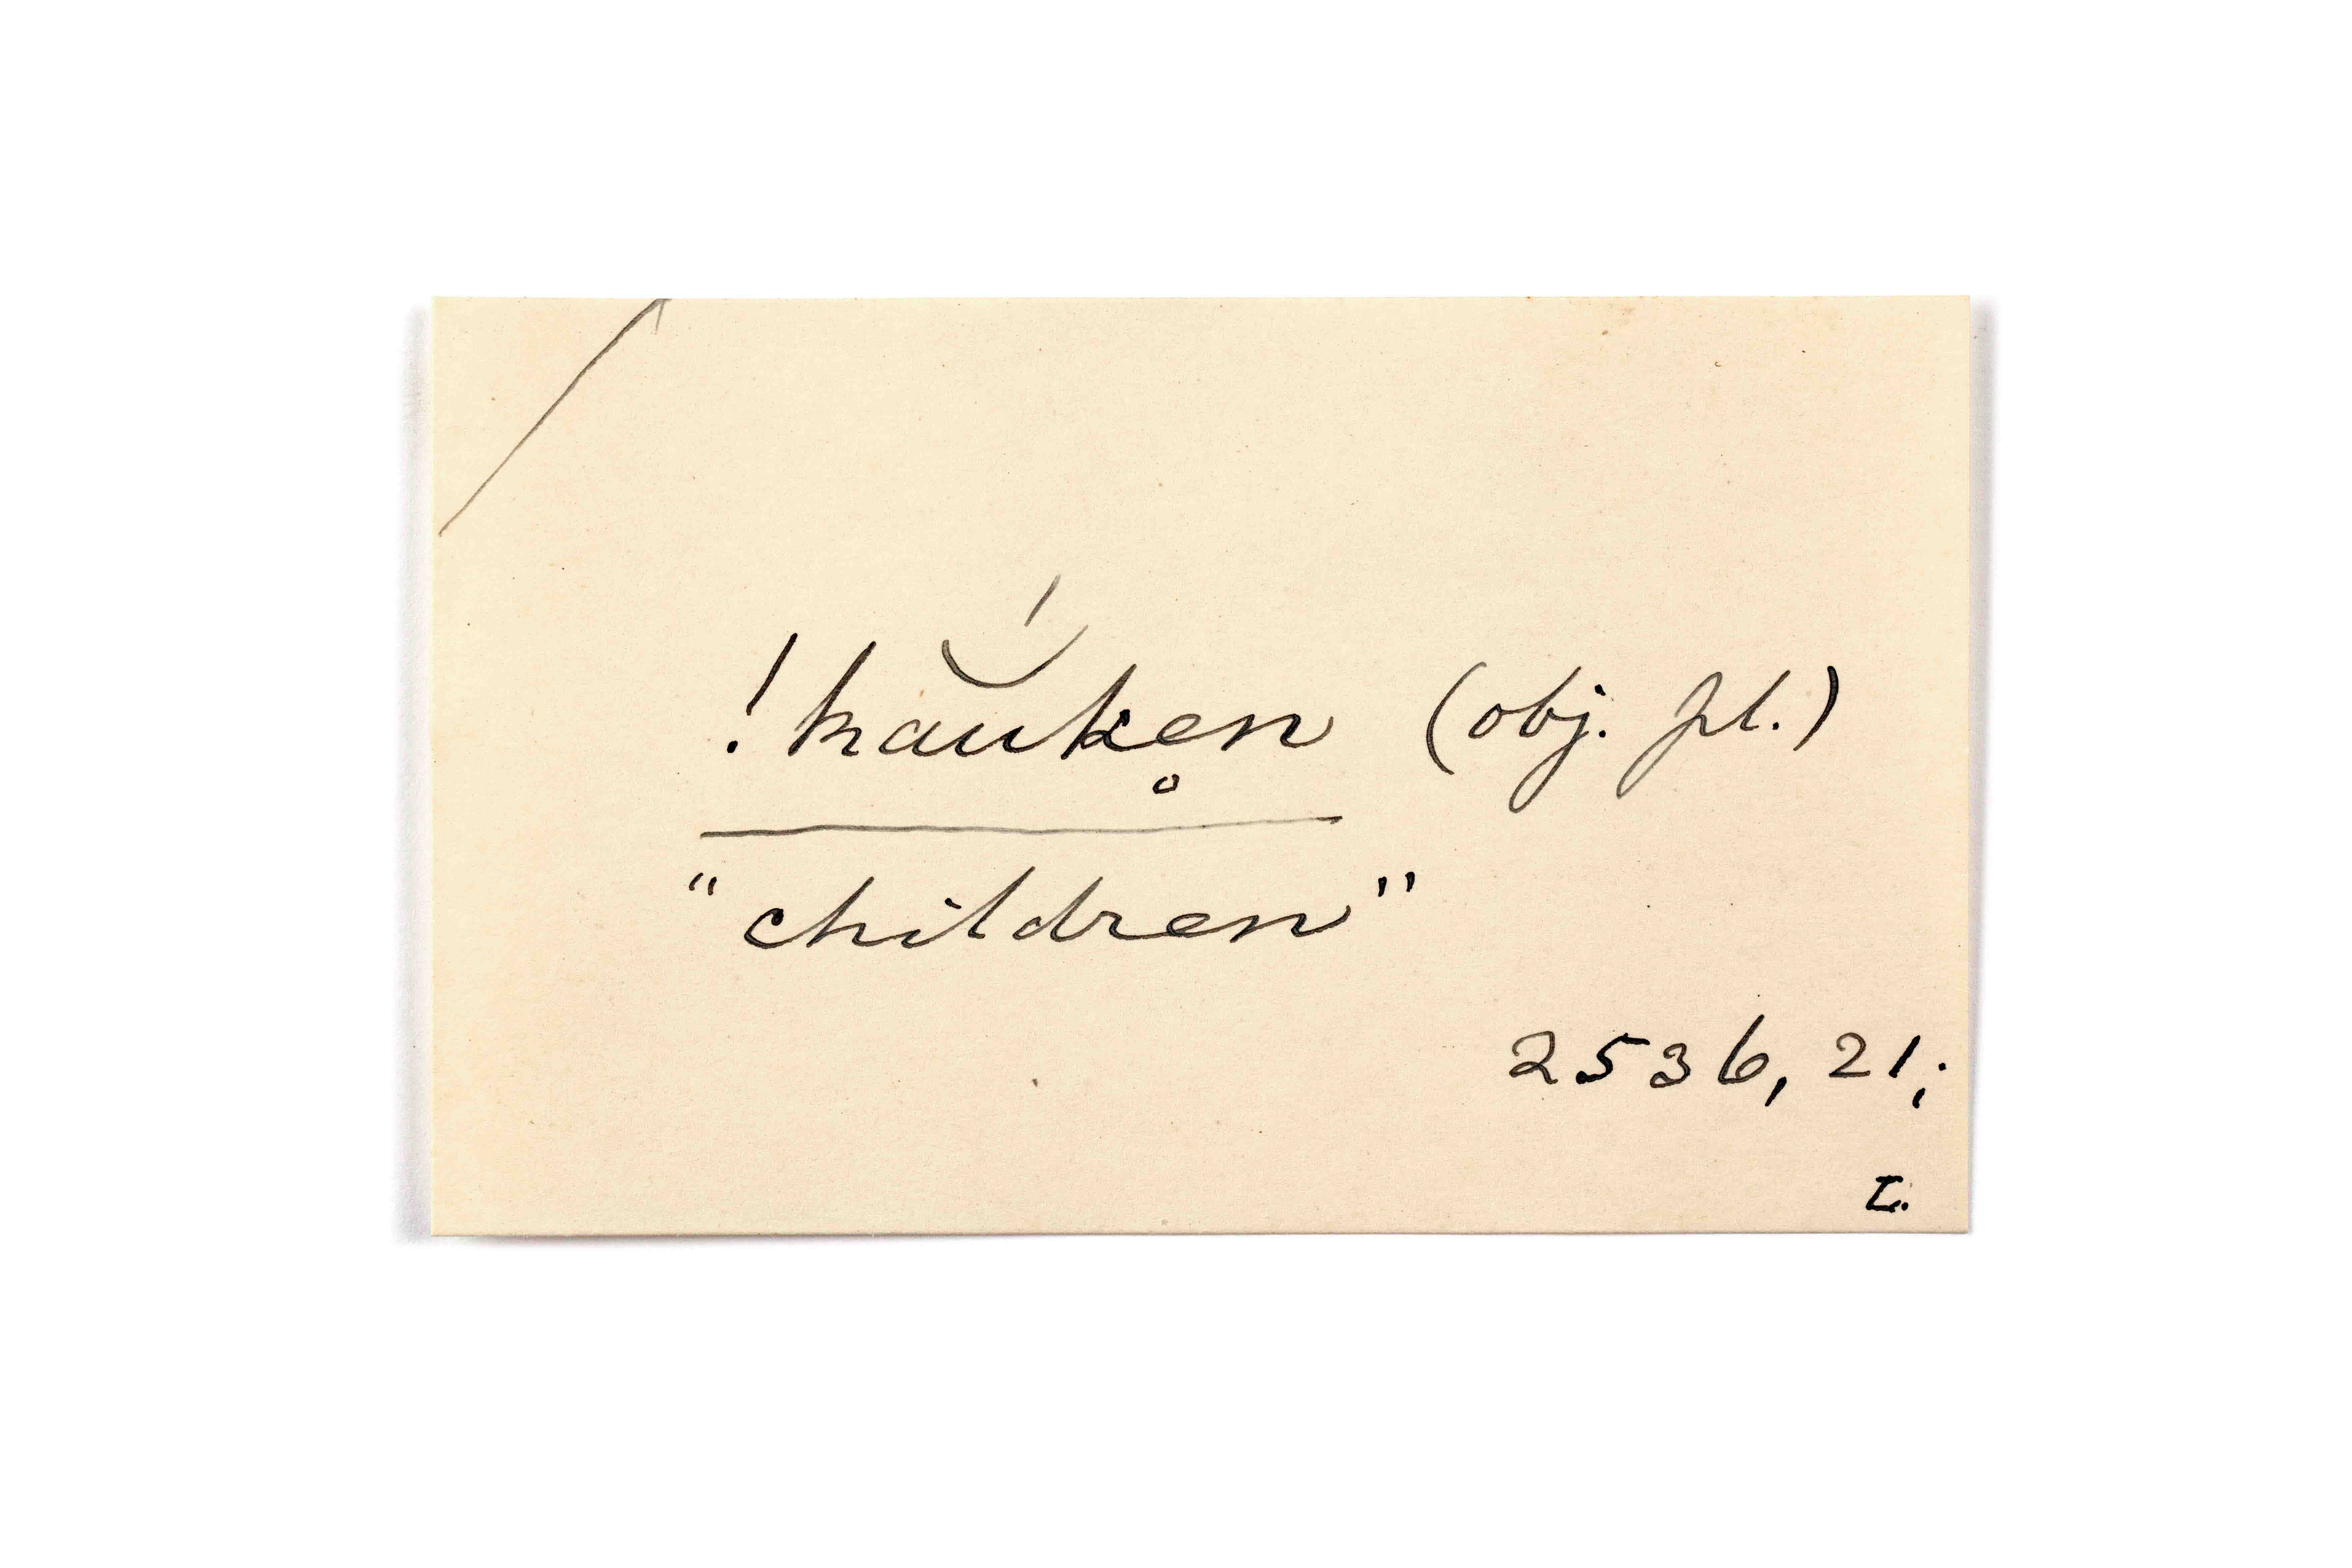 !ka͝úke̥n (obj. pl.)
"children"
2536, 21;
L.